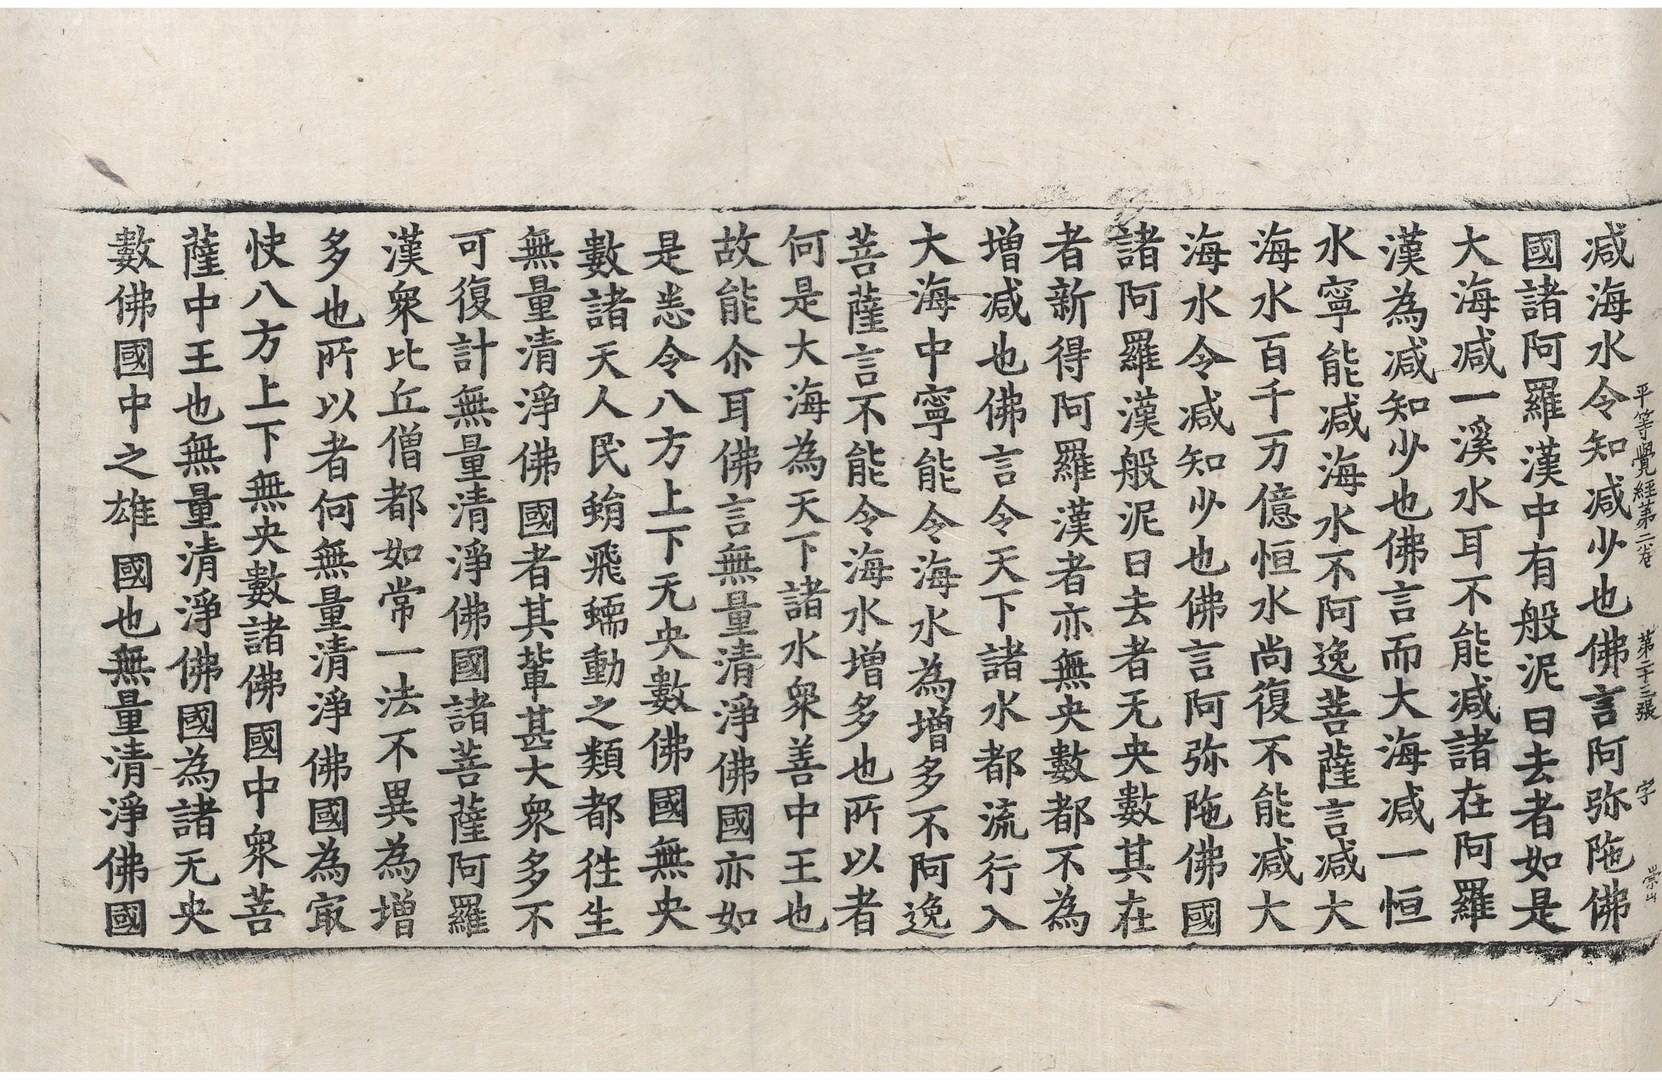 平等覺經第二卷　第二十三張　字　崇山
减海水令知减少也佛言阿弥陁佛
國諸阿羅漢中有般泥曰去者如是
大海减一溪水耳不能减諸在阿羅
漢為减知少也佛言而大海减一恒
水寧能减海水不阿逸菩薩言减大
海水百千万億恒水尚復不能减大
海水令减知少也佛言阿弥陁佛國
諸阿羅漢般泥曰去者无央數其在
者新得阿羅漢者亦無央數都不為
增减也佛言令天下諸水都流行入
大海中寧能令海水為增多不阿逸
菩薩言不能令海水增多也所以者
何是大海為天下諸水衆善中王也
故能尒耳佛言無量清淨佛國亦如
是悉令八方上下无央數佛國無央
數諸天人民蜎飛蠕動之類都往生
無量清淨佛國者其輩甚大衆多不
可復計無量清淨佛國諸菩薩阿羅
漢衆比丘僧都如常一法不異為增
多也所以者何無量清淨佛國為㝡
快八方上下無央數諸佛國中衆菩
薩中王也無量清淨佛國為諸无央
數佛國中之雄國也無量清淨佛國